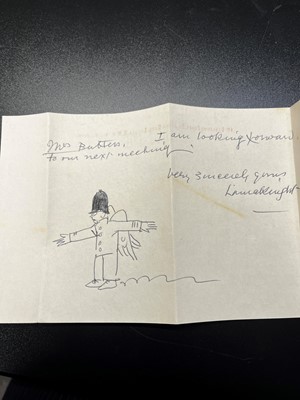 Mrs Butters, I am looking forwar
to our next meeting
Very sincerely yours